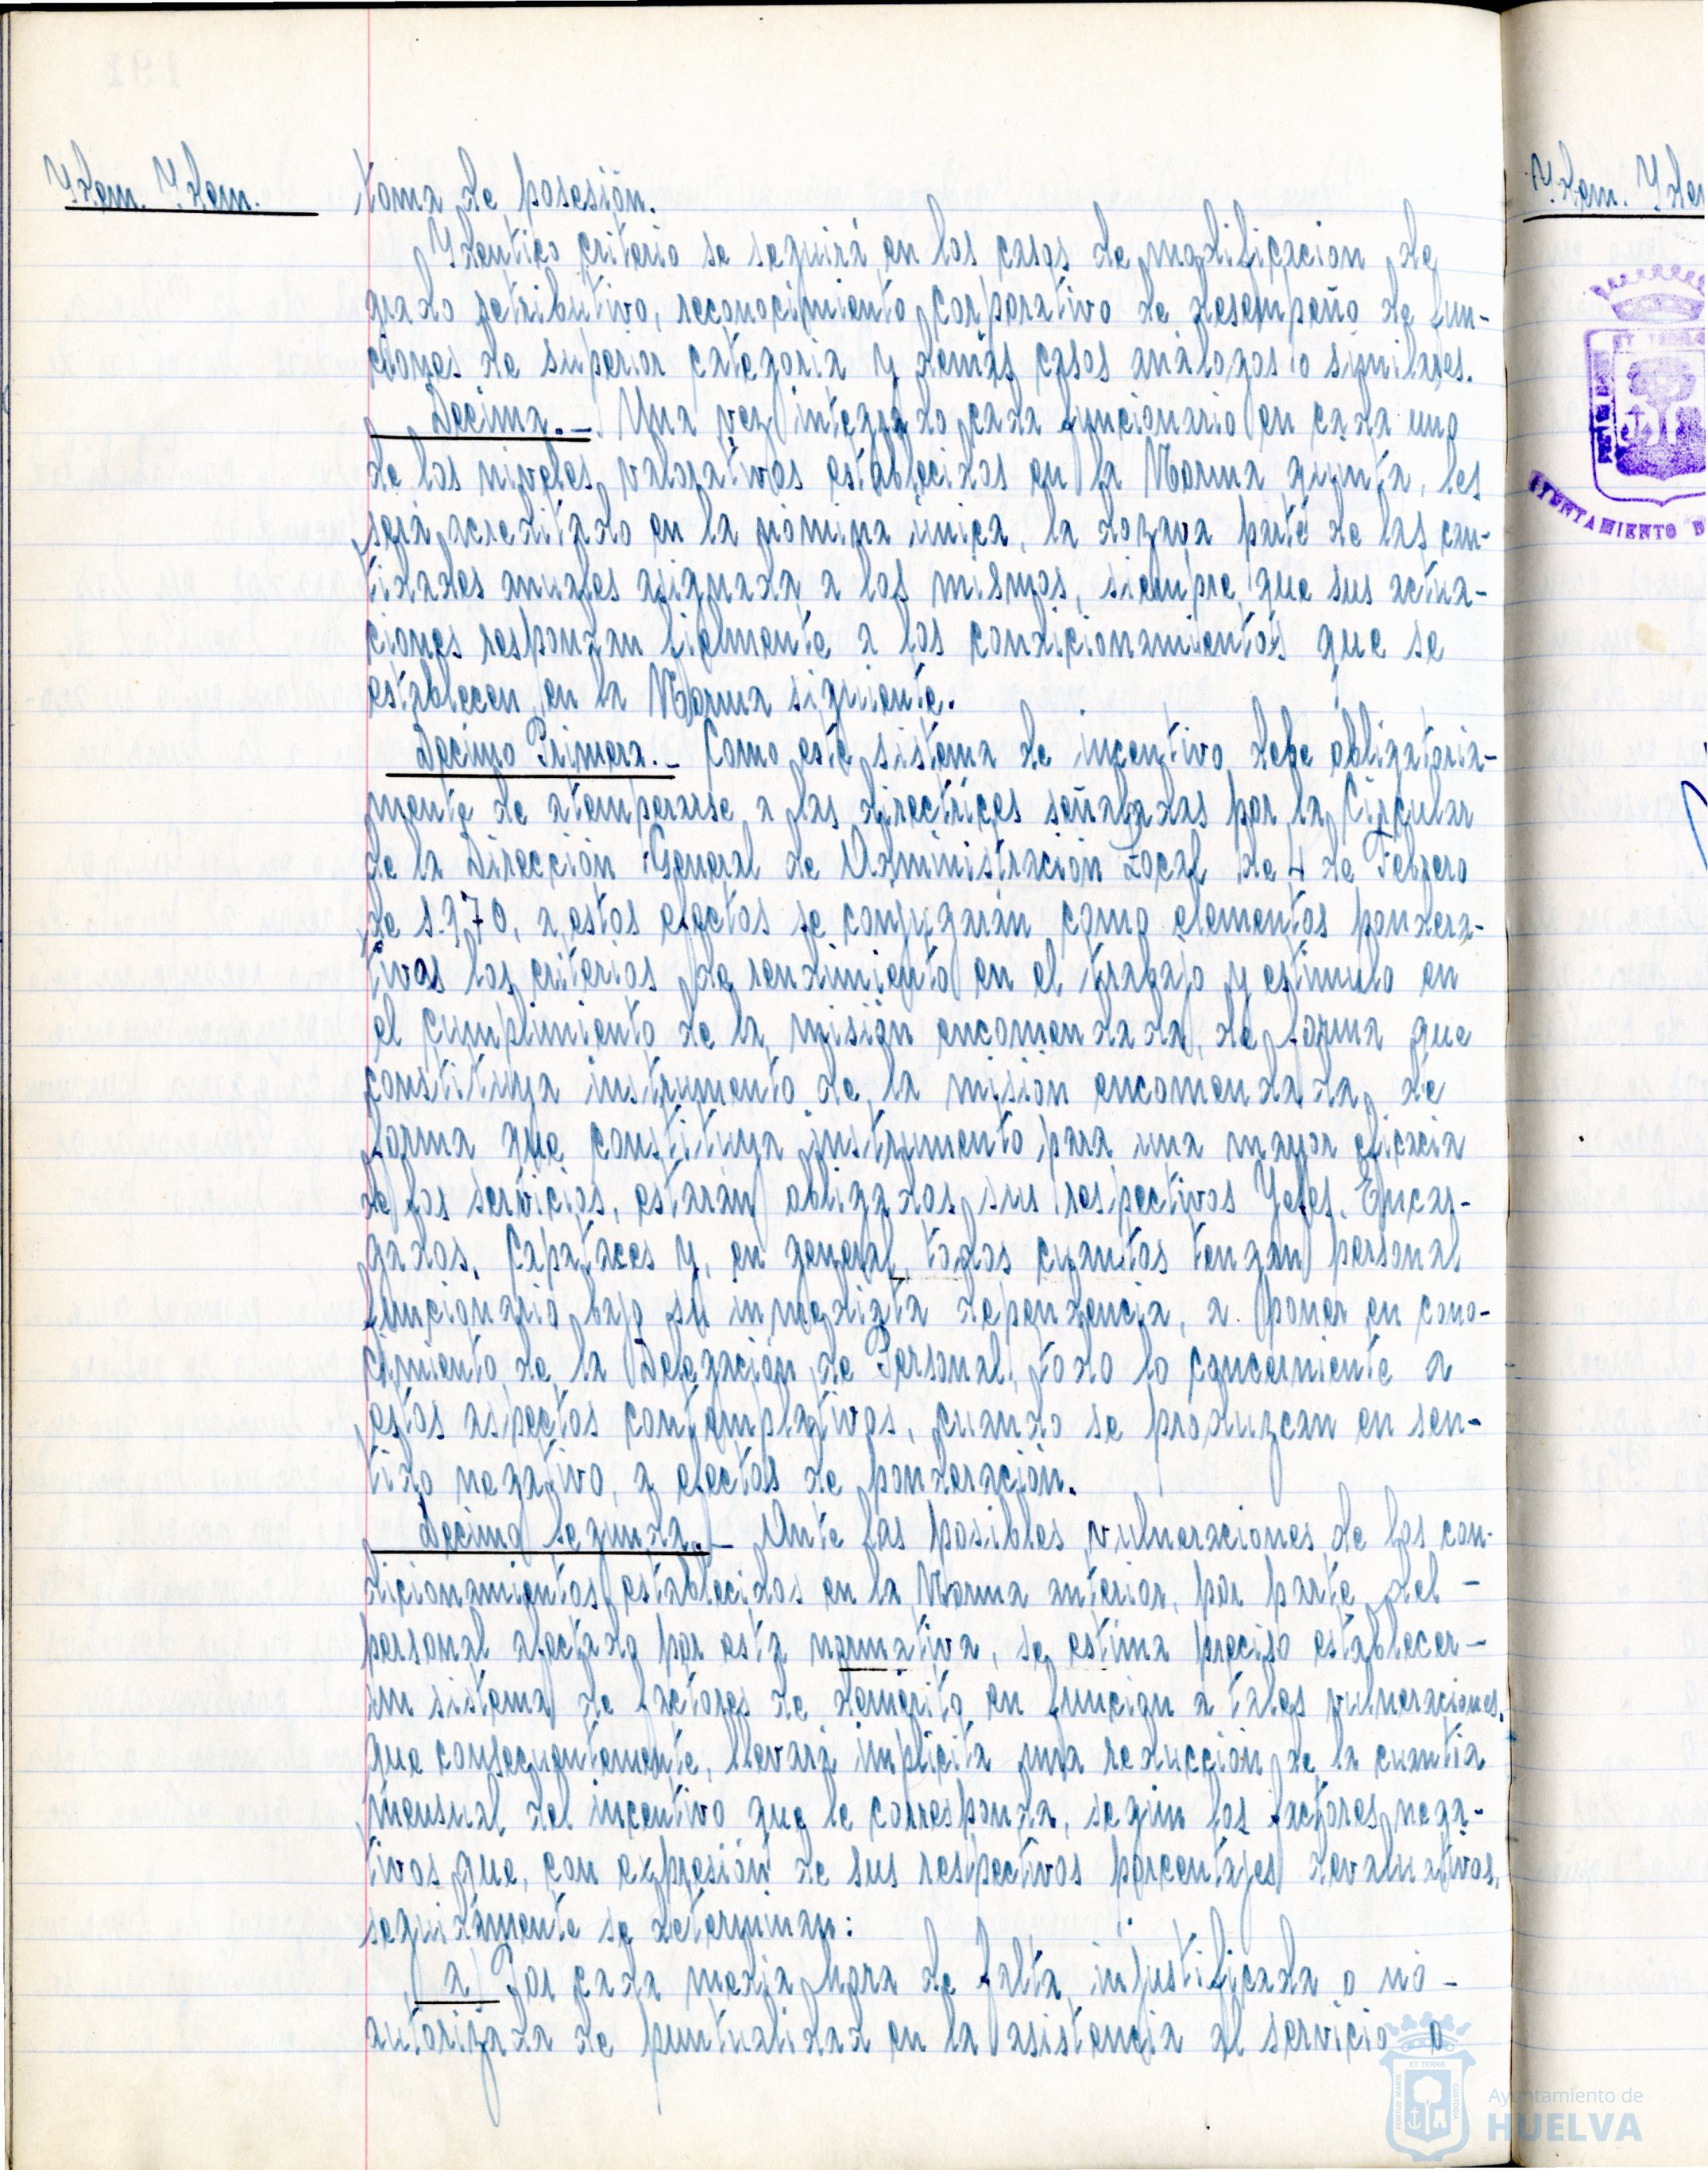 Ydem. Ydem.
toma de posesión.
Ydentico criterio se seguirá en los casos de modificacion de
grado retributivo, reconocimiento corporativo de desempeño de fun-
ciones de superior categoria y demás casos análogos o similares.
Decima.- Una vez integrado cada funcionario en cada uno
de los niveles valorativos establecidos en la Norma quinta, les
será acreditado en la nómina única, la dozava parte de las can-
tidades anuales asignada a los mismos, siempre que sus actua-
ciones respondan fielmente a los condicionamientos que se
establecen en la Norma siguiente.
Decimo Primera.- Como este sistema de incentivo debe obligatoria-
mente de atemperarse a las directrices señaladas por la Circular
de la Dirección General de Administración Local de 4 de Febrero
de 1.970, a estos efectos se conjugarán como elementos pondera-
tivos los criterios de rendimiento en el trabajo y estimulo en
el cumplimiento de la misión encomendada, de forma que
constituya instrumento de la misión encomendada, de
forma que constituya instrumento para una mayor eficacia
de los servicios, estarán obligados sus respectivos Yefes, Encar-
gados, Capataces y, en general, todos cuantos tengan personal
funcionario bajo su inmediata dependencia, a poner en cono-
cimiento de la Delegación de Personal, todo lo concerniente a
estos aspectos contemplativos, cuando se produzcan en sen-
tido negativo, a efectos de ponderación.
Decimo Segunda.- Ante las posibles vulneraciones de los con-
dicionamientos establecidos en la Norma anterior, por parte del -
personal afectado por esta normativa, se estima preciso establecer -
un sistema de factores de demerito en funcion a tales vulneraciones,
que consecuentemente, llevará implicita una reducción de la cuantia
mensual del incentivo que le corresponda, según los factores nega-
tivos que, con expresión de sus respectivos porcentajes devaluativos,
seguidamente se determinan:
a) Por cada media hora de falta injustificada o no -
autorizada de puntualidad en la asistencia al servicio o
Ydem. Yde
ET TERRA
AYUNTAMIENTO D
Ayuntamiento de
HUELVA